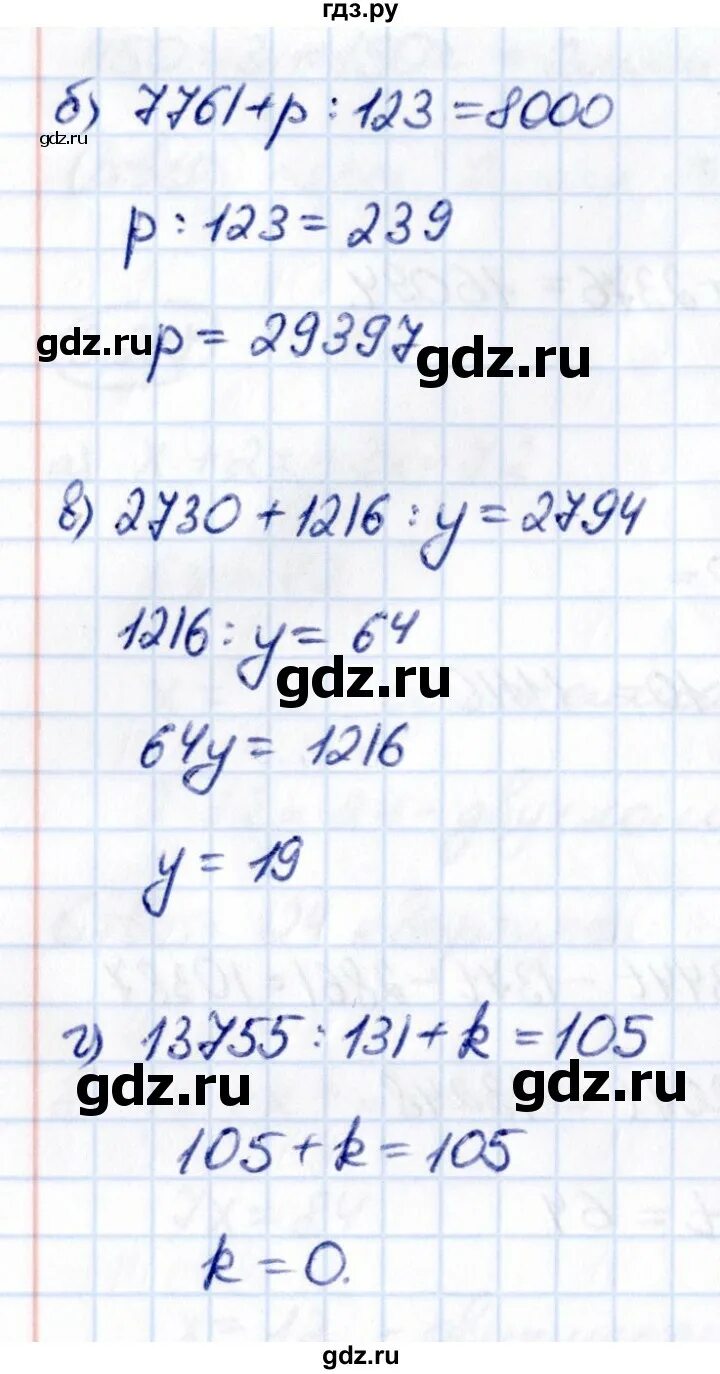 гдз.ру
б) 7761+p : 123 = 8000
gdz.ru
p : 123 = 239
gdz.ru p = 29397 gdz.ru
в) 2730 + 1216 : y = 2794
1216 : y = 64
gdz.ru
64y = 1216
y = 19
г) 13755 : 131 + k = 105
gdz.ru gdz.ru
105 + k = 105
k = 0.
gdz.ru